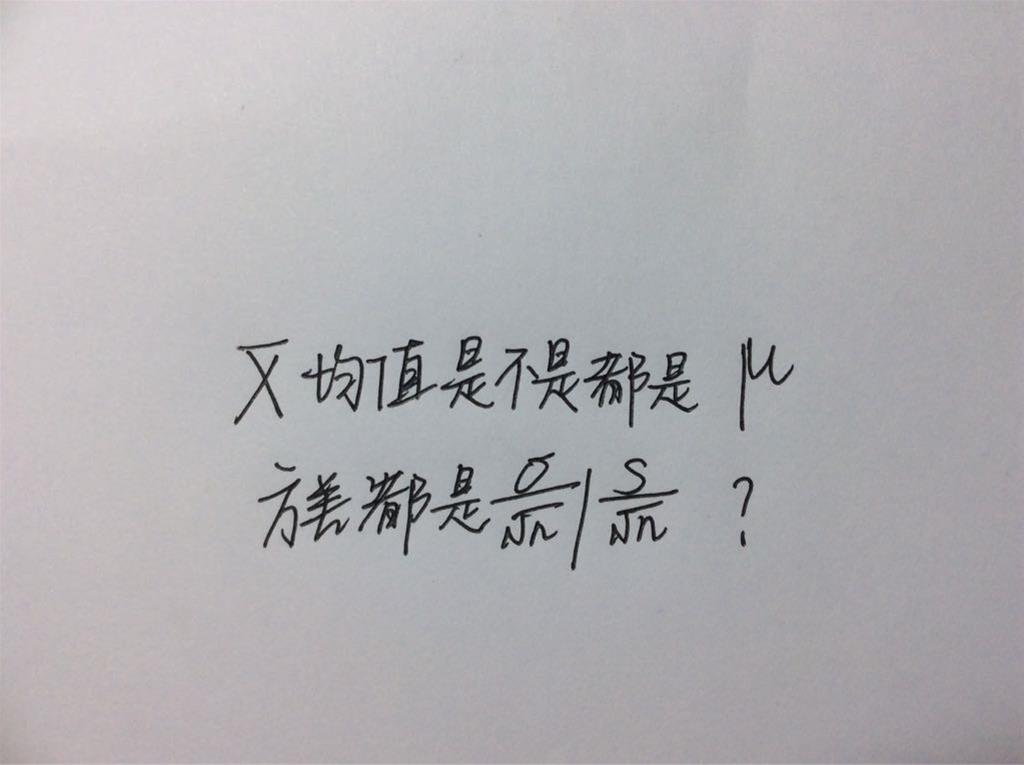 X̅ 均值是不是都是 μ
方差都是 σ/√n / s/√n ?